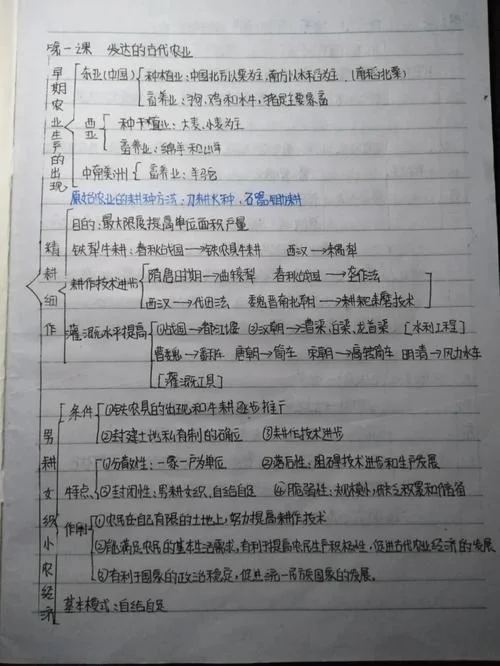 第一课 发达的古代农业
早期农业生产的出现
东亚(中国) 种植业:中国北方以粟为主,南方以水稻为主 (南稻北粟)
畜养业:狗、鸡和水牛,猪是主要家畜
西亚 种植业:大麦、小麦为主
畜养业:绵羊和山羊
中南美洲 畜养业:羊马
原始农业的耕种方法:刀耕火种、石器锄耕
精耕细作
目的:最大限度提高单位面积产量
铁犁牛耕:春秋战国→铁农具牛耕 西汉→耦犁
耕作技术进步 隋唐时期→曲辕犁 春秋战国→垄作法
西汉→代田法 魏晋南北朝→耕耙耱技术
灌溉水平提高 ①战国→都江堰 ②汉朝→漕渠、白渠、龙首渠 [水利工程]
曹魏→翻车 唐朝→筒车 宋朝→高转筒车 明清→风力水车
[灌溉工具]
男耕女织小农经济
条件 ①铁农具的出现和牛耕逐步推广
②封建土地私有制的确立 ③耕作技术进步
特点 ①分散性:一家一户为单位 ②落后性:阻碍技术进步和生产发展
③封闭性:男耕女织、自给自足 ④脆弱性:规模小,缺乏积累和储备
作用 ①农民在自己有限的土地上,努力提高耕作技术
②能满足农民的基本生活需求,有利于提高农民生产积极性,促进古代农业经济的发展
③有利于国家的政治稳定,促进统一民族国家的发展。
基本模式:自给自足